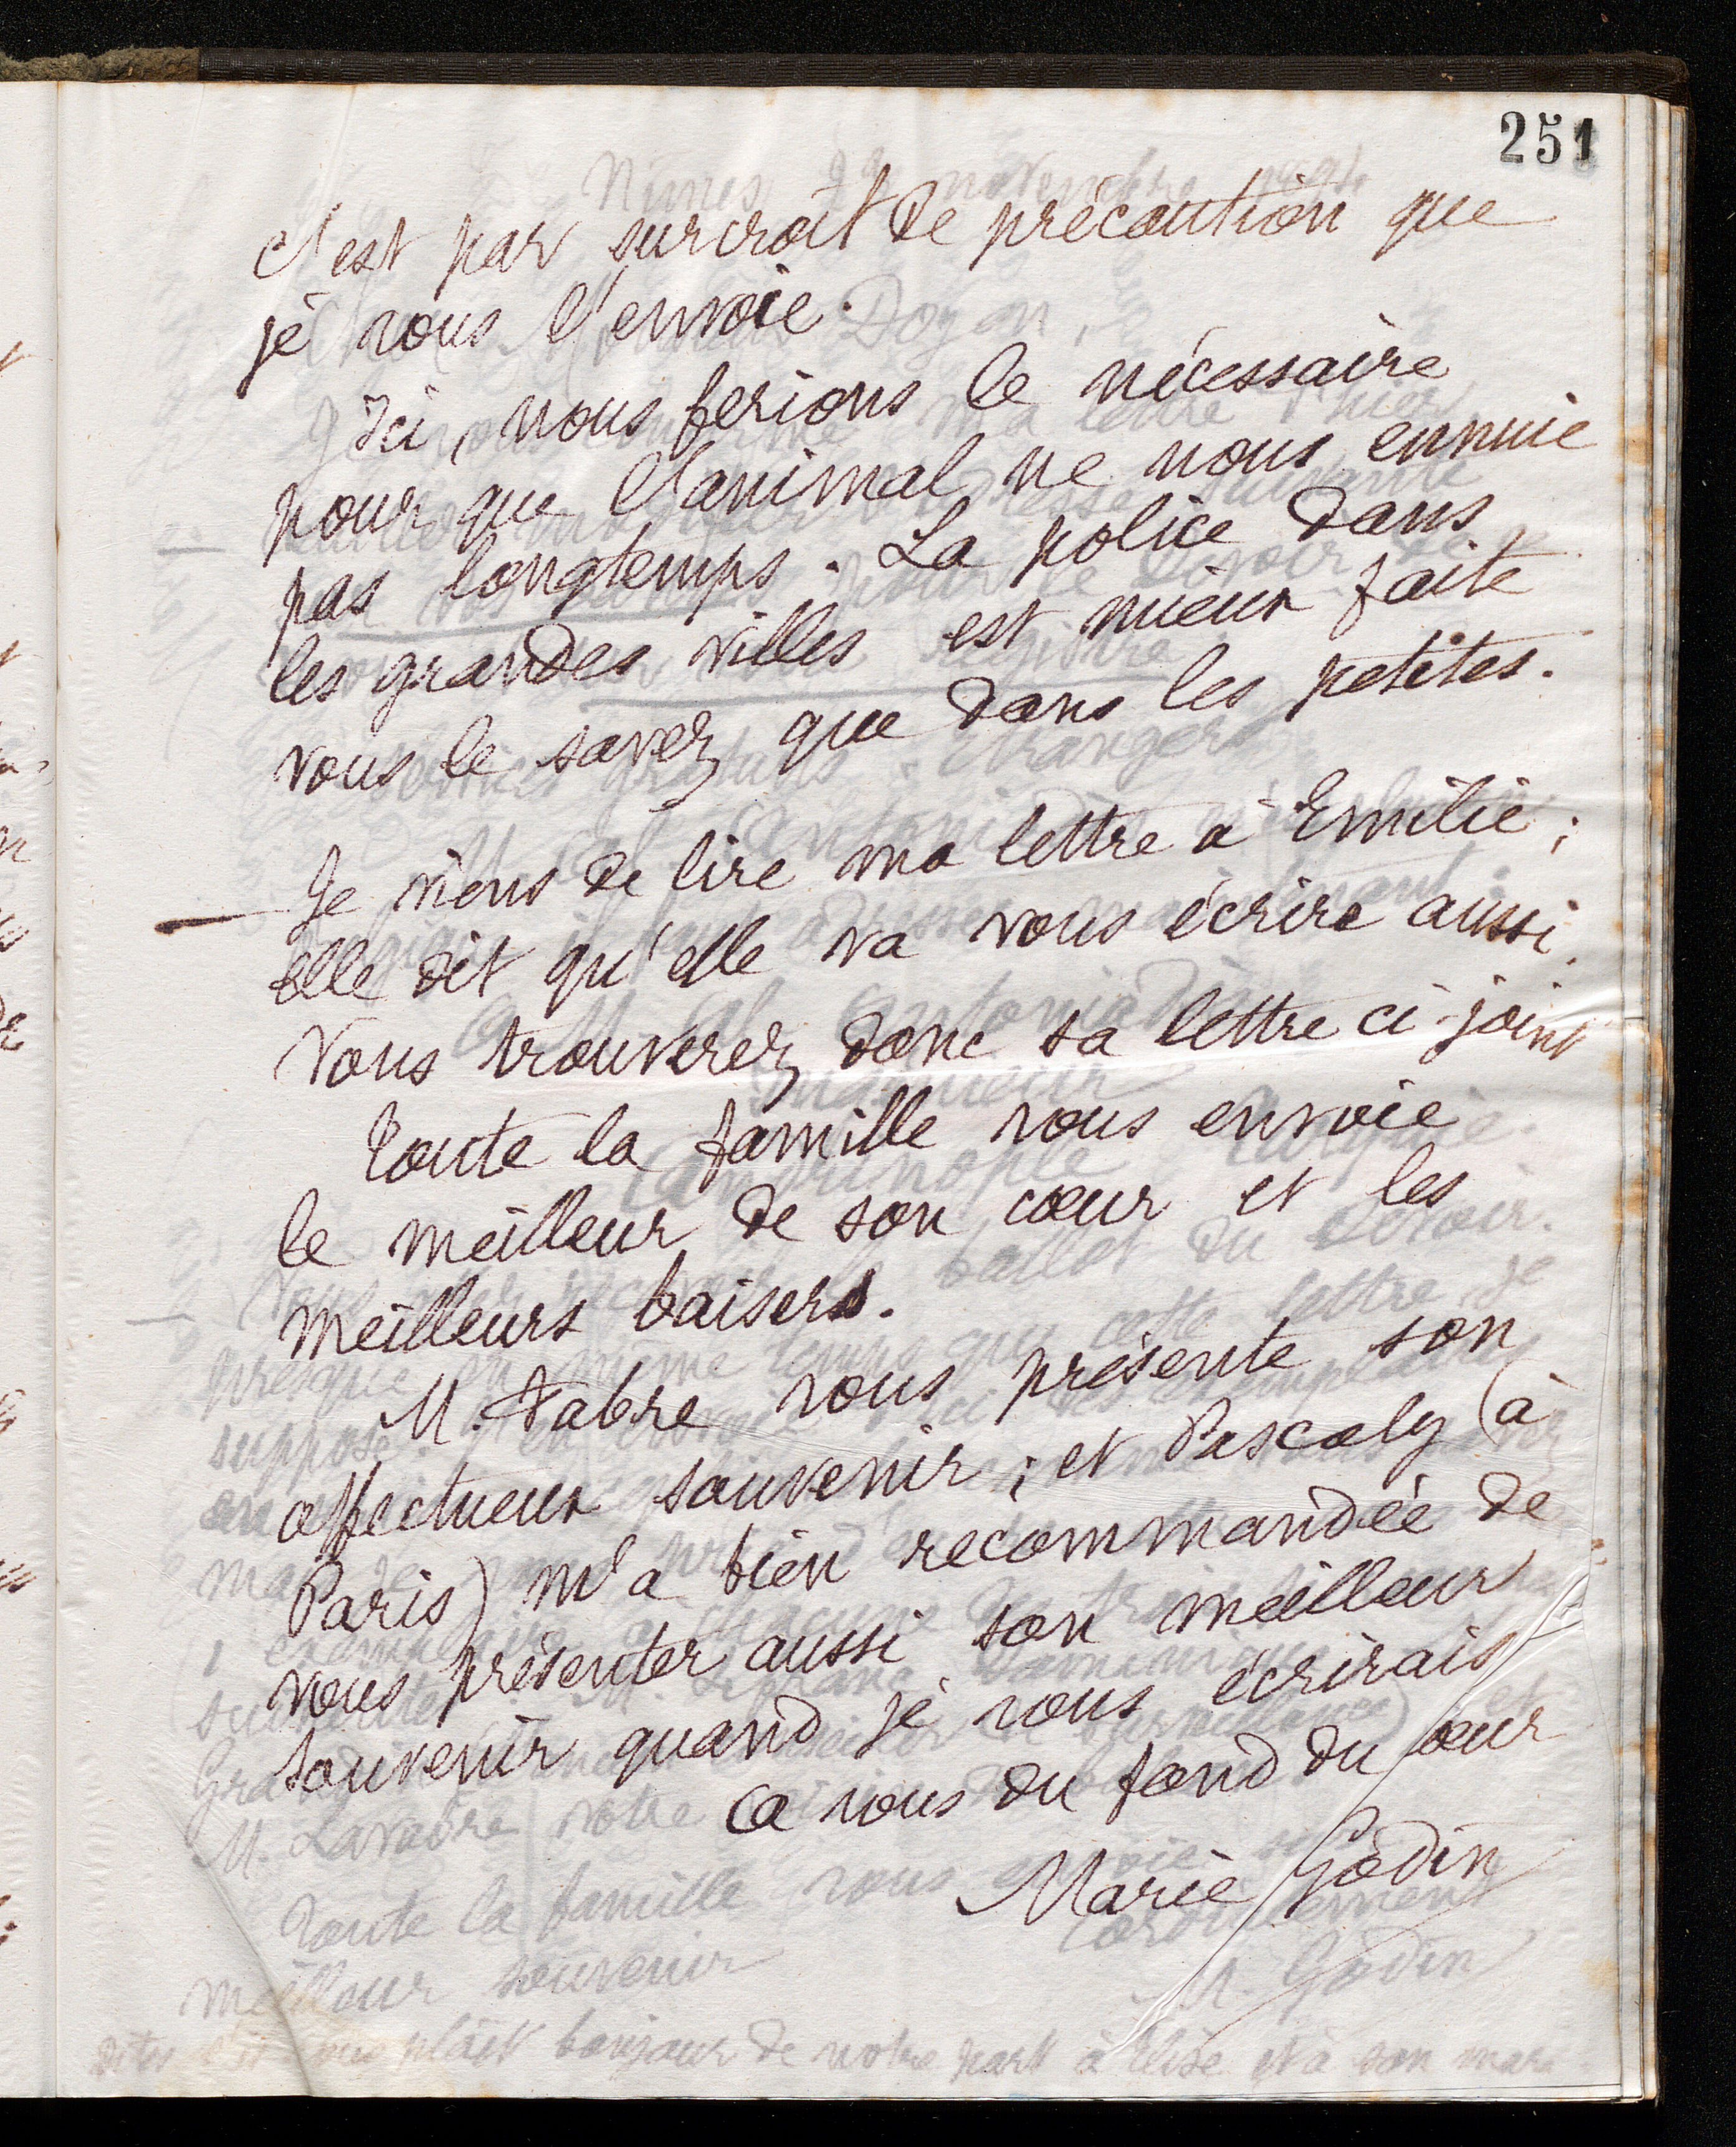 251
C'est par surcroît de précaution que
je vous l'envoie.
Ici, nous ferions le nécessaire
pour que l'animal ne nous ennuie
pas longtemps. La police dans
les grandes villes est mieux faite
vous le savez que dans les petites.
— Je viens de lire ma lettre à Emilie ;
elle dit qu'elle va vous écrire aussi.
Vous trouverez donc sa lettre ci-joint
Toute la famille vous envoie
le meilleur de son cœur et les
meilleurs baisers.
M. Fabre vous présente son
affectueux souvenir ; et Pascaly (à
Paris) m'a bien recommandée de
vous présenter aussi son meilleur
souvenir quand je vous écrirais
A vous du fond du cœur
Marie Godin